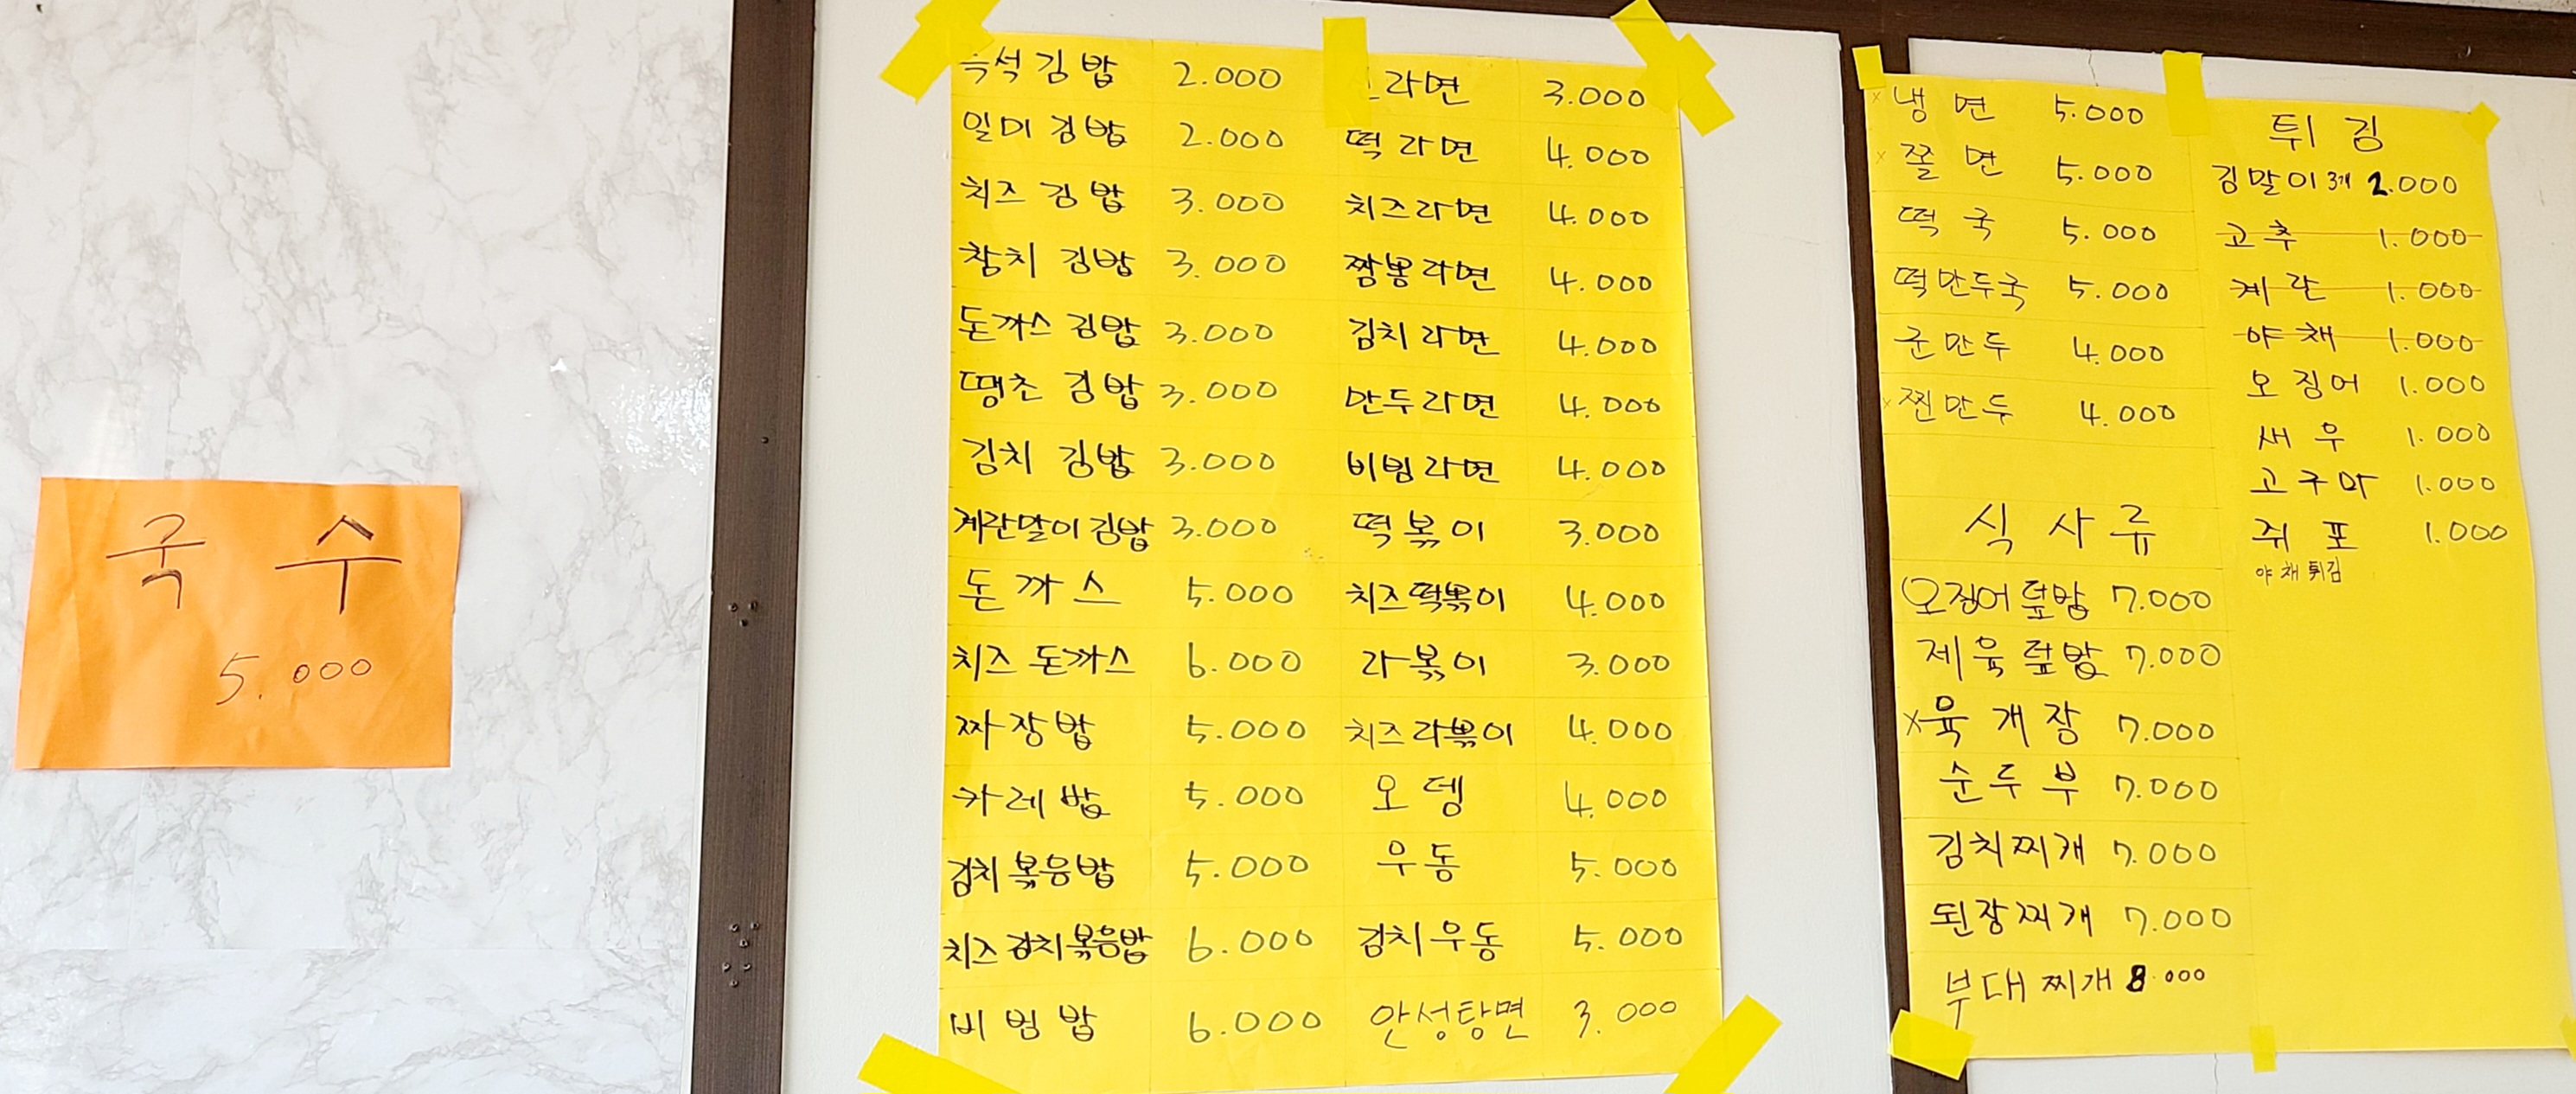 국수
5.000
즉석김밥 2.000
일미김밥 2.000
치즈김밥 3.000
참치김밥 3.000
돈까스김밥 3.000
땡초김밥 3.000
김치김밥 3.000
계란말이김밥 3.000
돈까스 5.000
치즈돈까스 6.000
짜장밥 5.000
카레밥 5.000
김치볶음밥 5.000
치즈김치볶음밥 6.000
비빔밥 6.000
라면 3.000
떡라면 4.000
치즈라면 4.000
짬뽕라면 4.000
김치라면 4.000
만두라면 4.000
비빔라면 4.000
떡볶이 3.000
치즈떡볶이 4.000
라볶이 3.000
치즈라볶이 4.000
오뎅 4.000
우동 5.000
김치우동 5.000
안성탕면 3.000
x냉면 5.000
x쫄면 5.000
떡국 5.000
떡만두국 5.000
군만두 4.000
x찐만두 4.000
식사류
오징어덮밥 7.000
제육덮밥 7.000
x육개장 7.000
순두부 7.000
김치찌개 7.000
된장찌개 7.000
부대찌개 8.000
튀김
김말이3개 2.000
고추 1.000
계란 1.000
야채 1.000
오징어 1.000
새우 1.000
고구마 1.000
쥐포 1.000
야채튀김